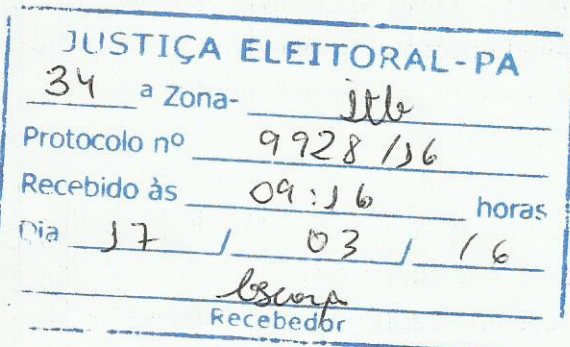 JUSTIÇA ELEITORAL-PA
34 a Zona- Itb
Protocolo nº 9928/16
Recebido às 09:16 horas
Dia 17 / 03 / 16
Recebedor